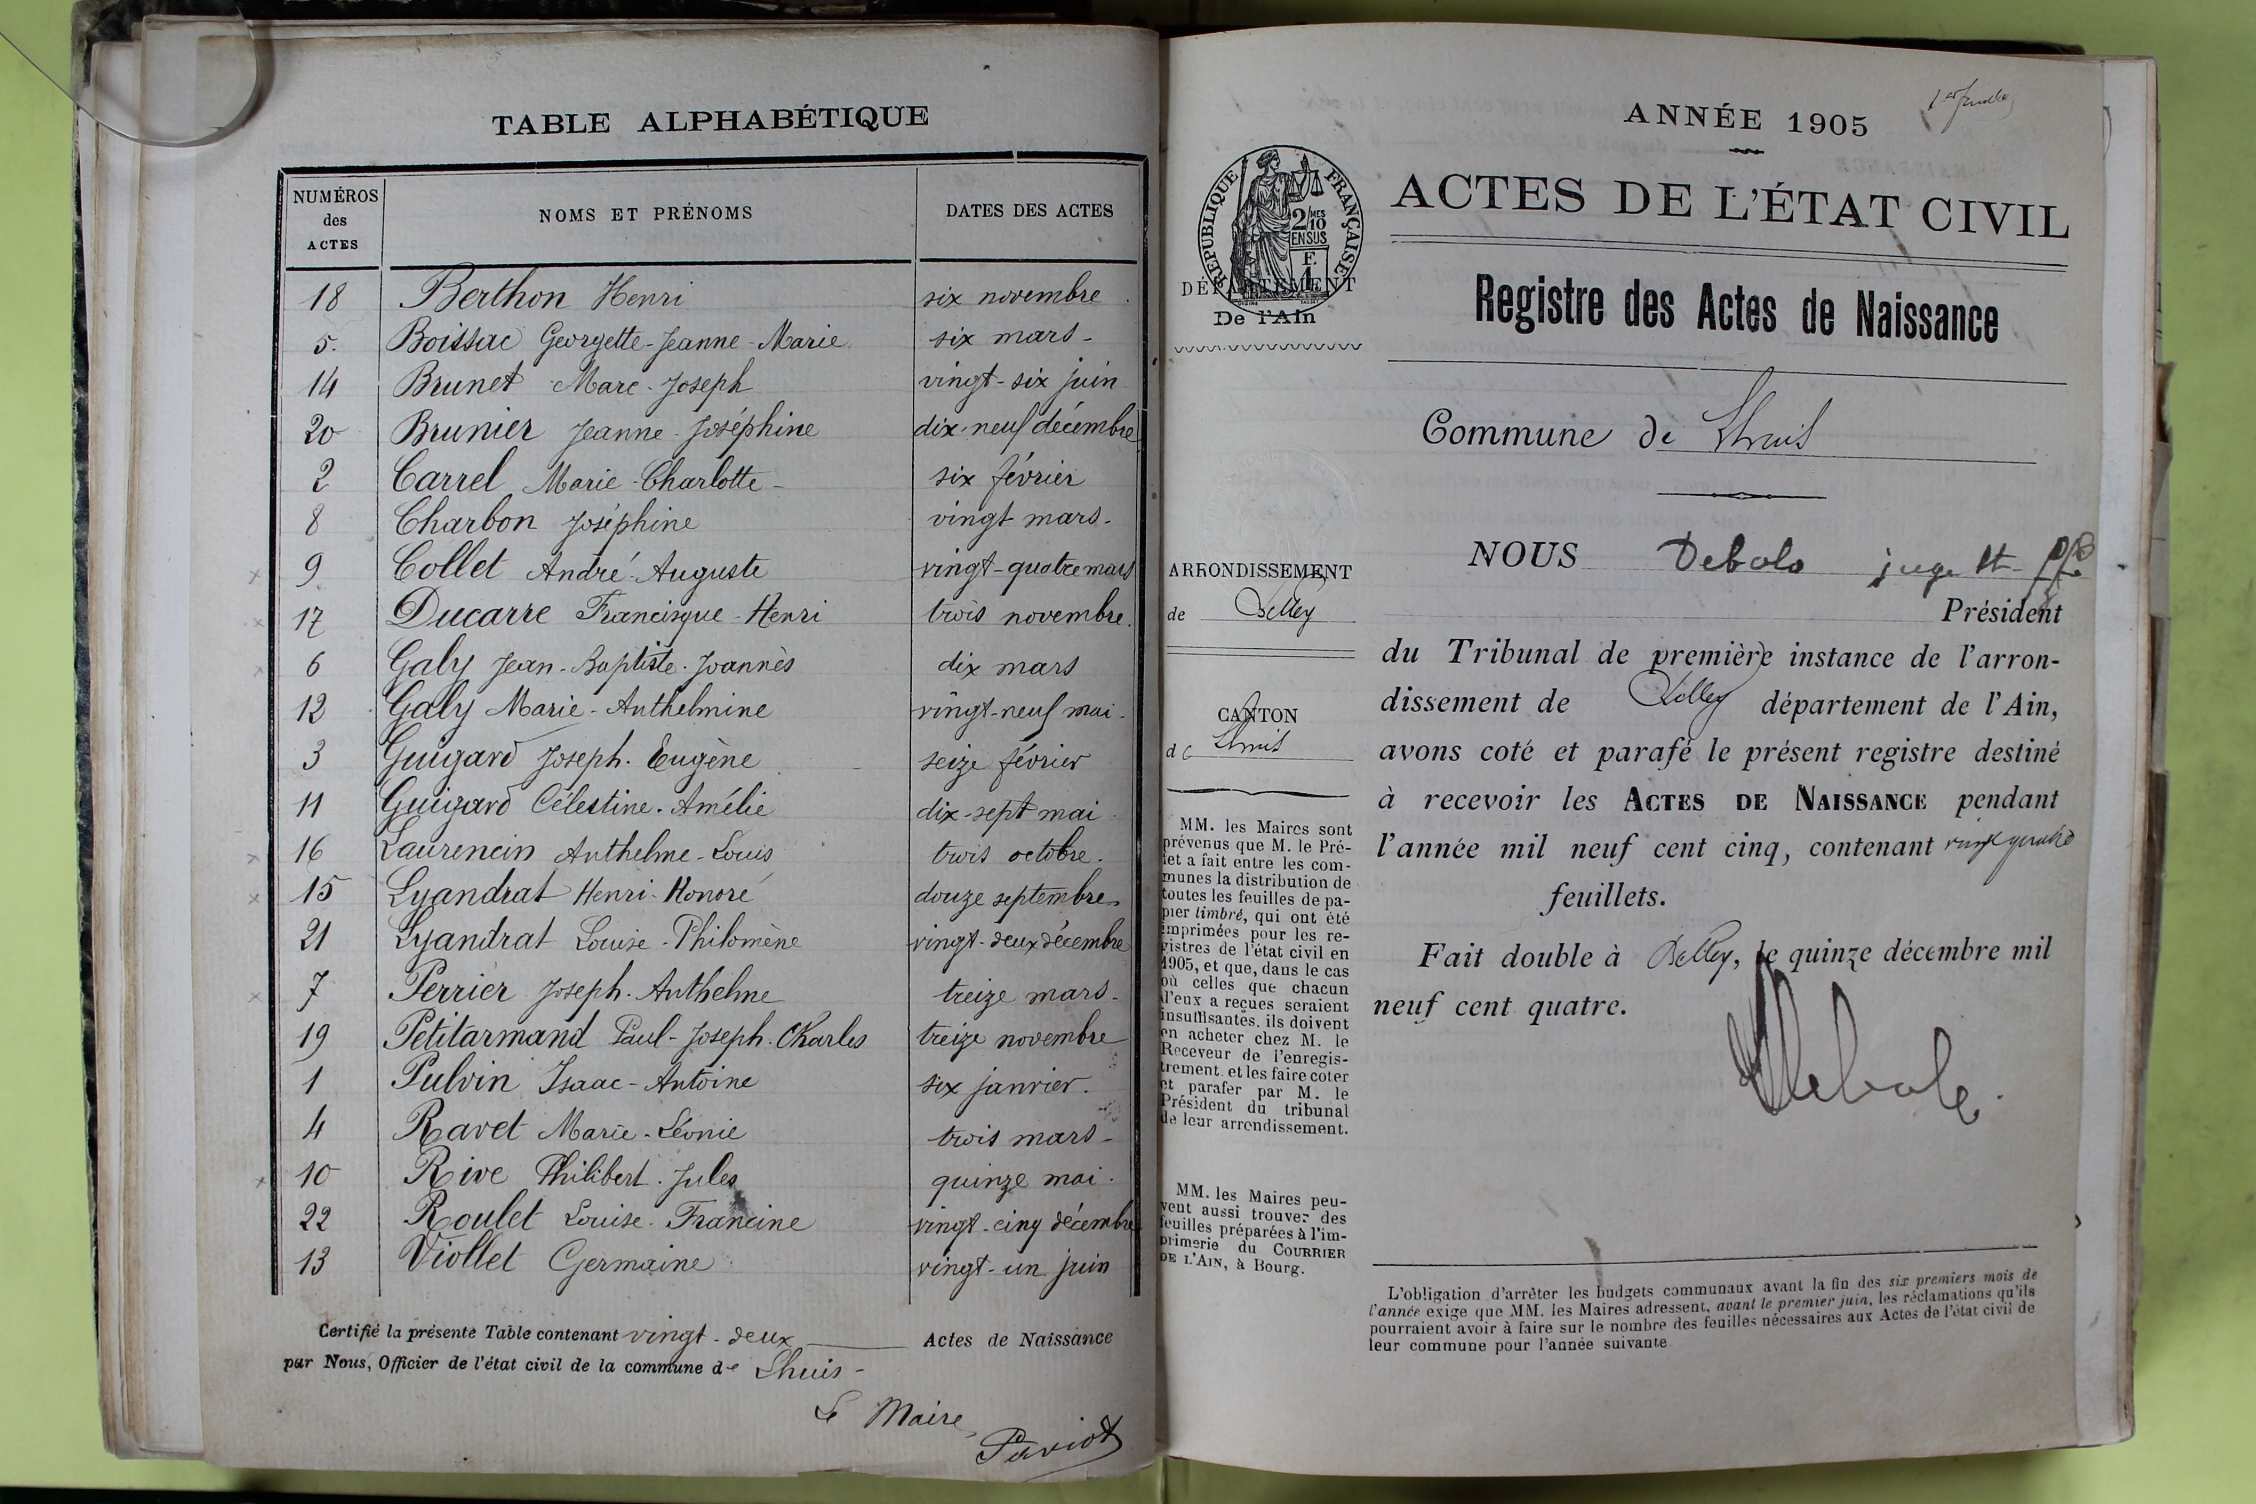 TABLE ALPHABÉTIQUE
NUMÉROS des ACTES
NOMS ET PRÉNOMS
DATES DES ACTES
18 Berthon Henri six novembre
5. Boissac Georgette-Jeanne-Marie six mars-
14 Brunet Marc-Joseph vingt-six juin
20 Brunier Jeanne-Joséphine dix-neuf décembre
2 Carrel Marie-Charlotte- six février
8 Charbon Joséphine vingt mars-
9 Collet André-Auguste vingt-quatre mars
17 Ducarre Francisque-Henri trois novembre.
6 Galy Jean-Baptiste-Joannès dix mars
12 Galy Marie-Anthelmine vingt-neuf mai-
3 Guigard Joseph-Eugène seize février
11 Guigard Célestine-Amélie dix-sept mai
16 Laurencin Anthelme-Louis trois octobre.
15 Lyandrat Henri-Honoré douze septembre
21 Lyandrat Louise-Philomène vingt-deux décembre
7 Perrier Joseph-Anthelme treize mars-
19 Petitarmand Paul-Joseph-Charles treize novembre
1 Pulvin Isaac-Antoine six janvier.
4 Ravet Marie-Léonie trois mars-
10 Rive Philibert-Jules quinze mai.
22 Roulet Louise-Francine vingt-cinq décembre
13 Viollet Germaine vingt-un juin
Certifié la présente Table contenant vingt-deux Actes de Naissance
par Nous, Officier de l'état civil de la commune de Lhuis-
Le Maire,
Paviot
1er feuillet
ANNÉE 1905
ACTES DE L'ÉTAT CIVIL
RÉPUBLIQUE FRANÇAISE
2/10MES
EN SUS
F.
1
DÉPARTEMENT
De l'Ain
Registre des Actes de Naissance
Commune de Lhuis
ARRONDISSEMENT
de Belley
CANTON
de Lhuis
MM. les Maires sont
prévenus que M. le Pré-
fet a fait entre les com-
munes la distribution de
toutes les feuilles de pa-
pier timbré, qui ont été
imprimées pour les re-
gistres de l'état civil en
1905, et que, dans le cas
où celles que chacun
d'eux a reçues seraient
insuffisantes, ils doivent
en acheter chez M. le
Receveur de l'enregis-
trement et les faire coter
et parafer par M. le
Président du tribunal
de leur arrondissement.
MM. les Maires peu-
vent aussi trouver des
feuilles préparées à l'im-
primerie du COURRIER
DE L'AIN, à Bourg.
NOUS Debolo juge
Président
du Tribunal de première instance de l'arron-
dissement de Belley département de l'Ain,
avons coté et parafé le présent registre destiné
à recevoir les ACTES DE NAISSANCE pendant
l'année mil neuf cent cinq, contenant vingt quatre
feuillets.
Fait double à Belley, le quinze décembre mil
neuf cent quatre.
L'obligation d'arrêter les budgets communaux avant la fin des six premiers mois de
l'année exige que MM. les Maires adressent, avant le premier juin, les réclamations qu'ils
pourraient avoir à faire sur le nombre des feuilles nécessaires aux Actes de l'état civil de
leur commune pour l'année suivante